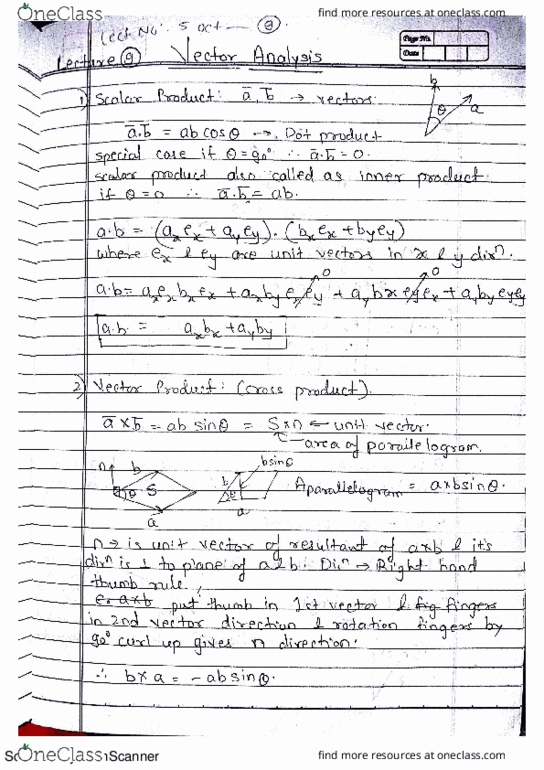 OneClass
find more resources at oneclass.com
Lect No: 5 oct — 9.
Page No.
Date
Lecture 9 Vector Analysis
1) Scalar Product: a̅, b̅ → vectors.
b
θ
a
a̅.b̅ = ab cosθ → Dot product
special case if θ=90° ∴ a̅.b̅ = 0.
scalar product also called as inner product
if θ=0 ∴ a̅.b̅ = ab.
a.b = (aₓeₓ + a_y e_y) . (bₓeₓ + b_y e_y)
where eₓ & e_y are unit vectors in x & y dirⁿ.
0 0
a.b = aₓeₓbₓeₓ + aₓb_y eₓe_y + a_y bₓ e_y eₓ + a_y b_y e_y e_y
a.b = aₓbₓ + a_y b_y
2) Vector Product: (cross product).
a̅ × b̅ = ab sinθ = S×n ← unit vector.
area of parallelogram.
n b θ S a
b bsinθ θ a
Aparallelogram = a×bsinθ.
n → is unit vector of resultant of a×b & it's
dirⁿ is ⊥ to plane of a & b. Dirⁿ → Right hand
thumb rule.
a×b put thumb in 1st vector & fig fingers
in 2nd vector direction & rotation fingers by
90° curl up gives n direction.
∴ b × a = -ab sinθ.
OneClass
Scanner
find more resources at oneclass.com